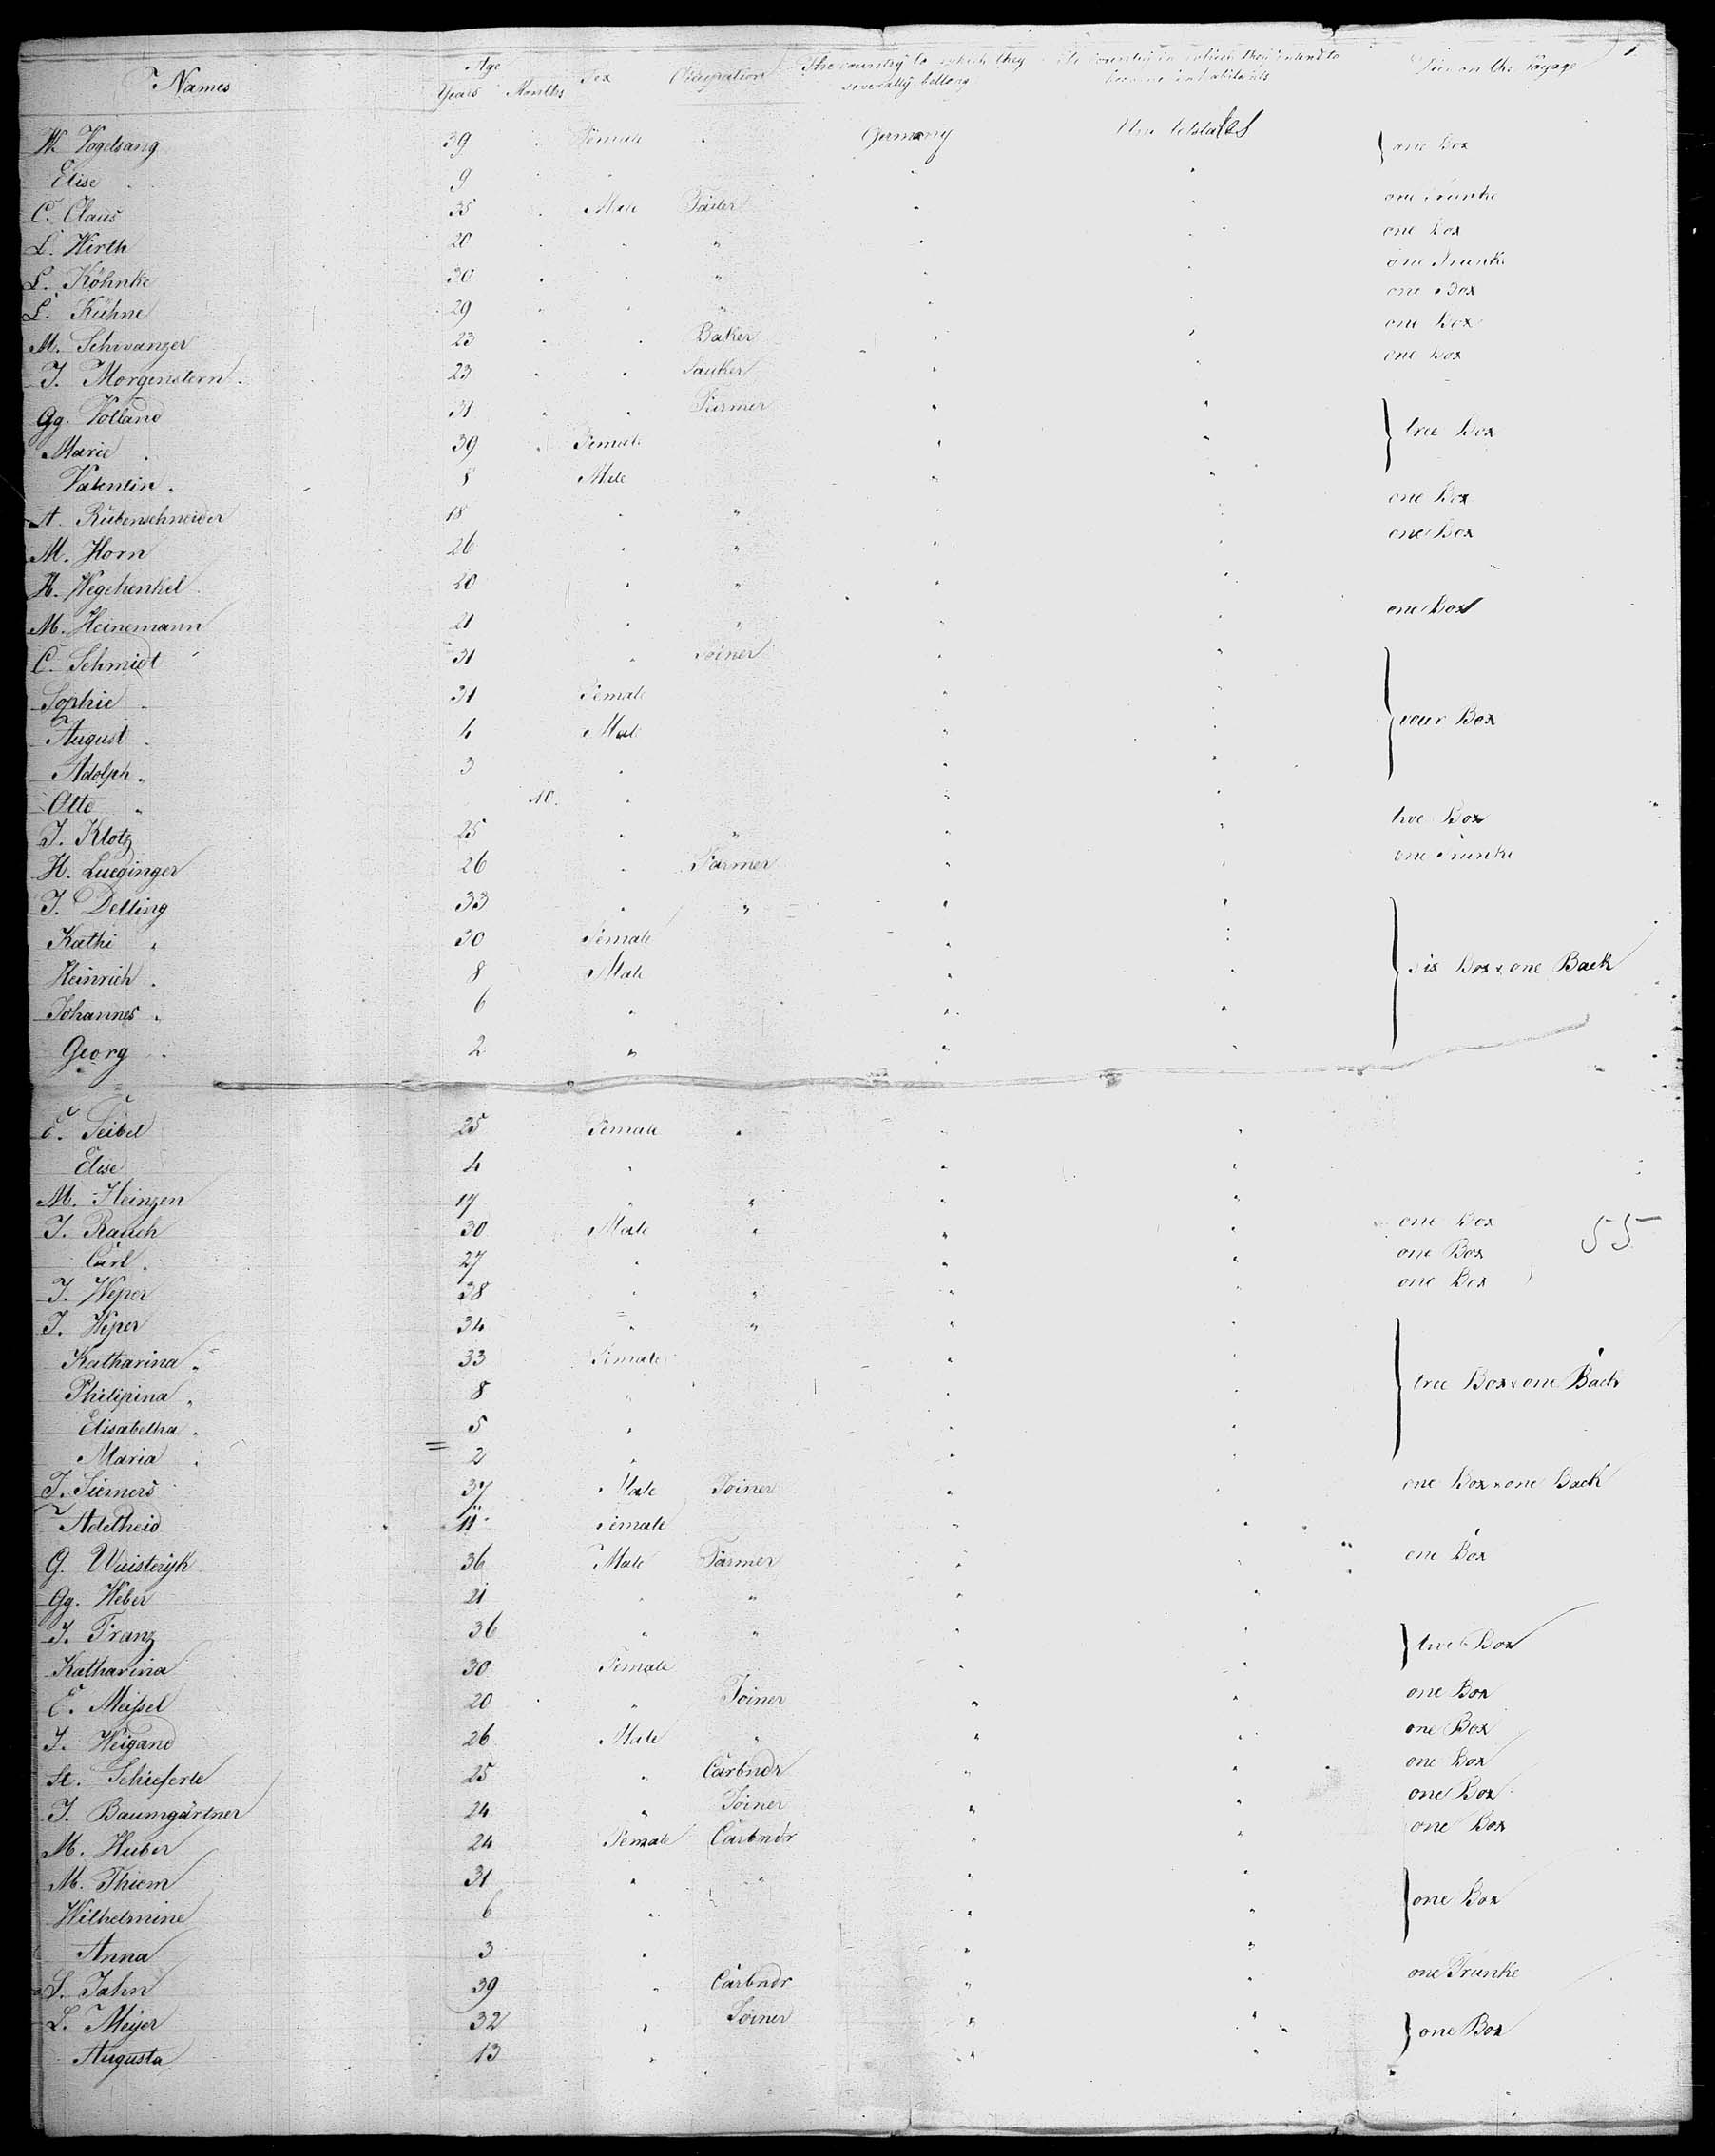 Names Age Years Months Sex Occupation The country to which they severally belong The country in which they intend to become inhabitants Died on the Voyage
W. Vogelsang 39 Female " Germany United states } one Box
Elise " 9 " " "
C. Claus 35 Male Tailer " " one Trunke
L. Wirth 20 " " " " one Box
L. Köhnke 30 " " " " one Trunke
L. Kühne 29 " " " " one Box
M. Schwanzer 23 " Baker " " one Box
J. Morgenstern 23 " " " one Box
Gg. Volland 31 " Farmer " "
Marie " 39 Female " " } tree Box
Valentin " 8 Male " "
A. Rübenschneider 18 " " " " one Box
M. Horn 26 " " " " one Box
H. Wegehenkel 20 " " " "
M. Heinemann 21 " " " " one Box
C. Schmidt 31 " Joiner " "
Sophie " 31 Female " "
August " 4 Male " " } vour Box
Adolph " 3 " " "
Otto " 10. " " "
J. Klotz 25 " " " " two Box
H. Lueginger 26 " Farmer " " one Trunke
J. Delling 33 " " " "
Kathi " 30 Female " "
Heinrich " 8 Male " " } six Box & one Back
Johannes " 6 " " "
Georg " 2 " " "
E. Seibel 25 Female " " "
Elise 4 " " "
M. Heinzen 17 " " " "
J. Rauch 30 Male " " " one Box 55
Carl " 27 " " " one Box
J. Weper 38 " " " " one Box
J. Weper 34 " " " "
Katharina " 33 Female " "
Philipina " 8 " " " } tree Box & one Back
Elisabetha " 5 " " "
Maria " 2 " " "
J. Siemers 37 Male Joiner " " one Box & one Back
Adelheid 11 Female " "
G. Wuisterijk 36 Male Farmer " " one Box
Gg. Weber 21 " " " "
J. Franz 36 " " " " } two Box
Katharina 30 Female " "
E. Meissel 20 " Joiner " " one Box
J. Weigand 26 Male " " " one Box
St. Schieferle 25 " Carbndr " " one Box
J. Baumgärtner 24 " Joiner " " one Box
M. Huber 24 Female Carbndr " " one Box
M. Thiem 31 " " " "
Wilhelmine 6 " " " } one Box
Anna 3 " " "
S. Jahn 39 " Carbndr " " one Trunke
L. Meijer 32 " Joiner " " } one Box
Augusta 13 " " "